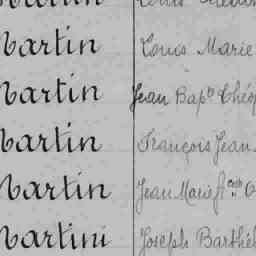 Martin Louis Marie
Martin Jean Bapte Théo
Martin François Jean
Martin Jean Marie
Martini Joseph Barthél